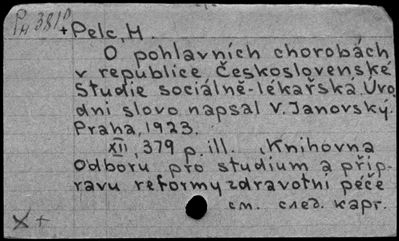 Рн 381
+Pelc, H.
O pohlavních chorobách
v republice Československé
Studie sociálně-lékařska. Úvo
dni slovo napsal V. Janovský.
Praha, 1923.
XII, 379 p. ill. (Knihovna
Odboru pro studium a příp-
ravu reformy zdravotní péče
см. след. карт.
X+